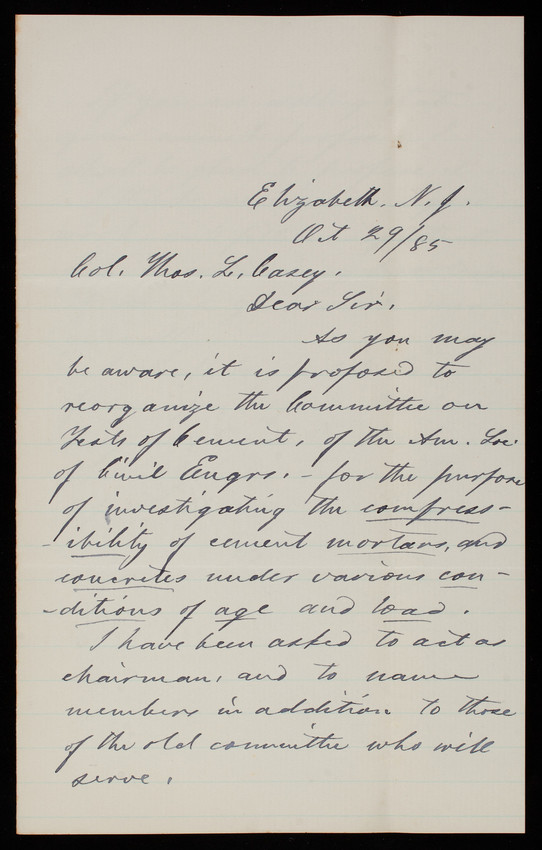 Elizabeth. N. J.
Oct 29/85
Col. Thos. L. Casey.
Dear Sir.
As you may
be aware, it is proposed to
reorganize the Committee on
Tests of Cement, of the Am. Soc.
of Civil Engrs. - for the purpose
of investigating the compress-
-ibility of cement mortars, and
concretes under various con-
-ditions of age and load.
I have been asked to act as
chairman, and to name
members in addition to those
of the old committee who will
serve.